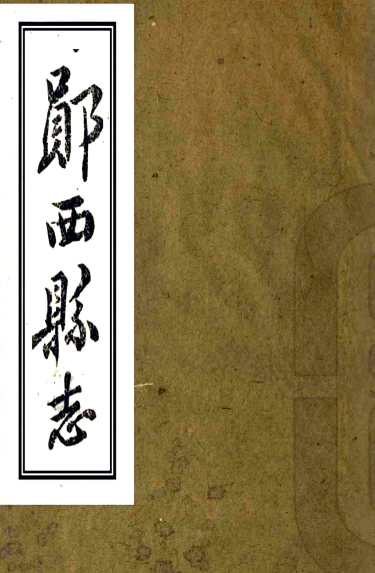 鄖西縣志